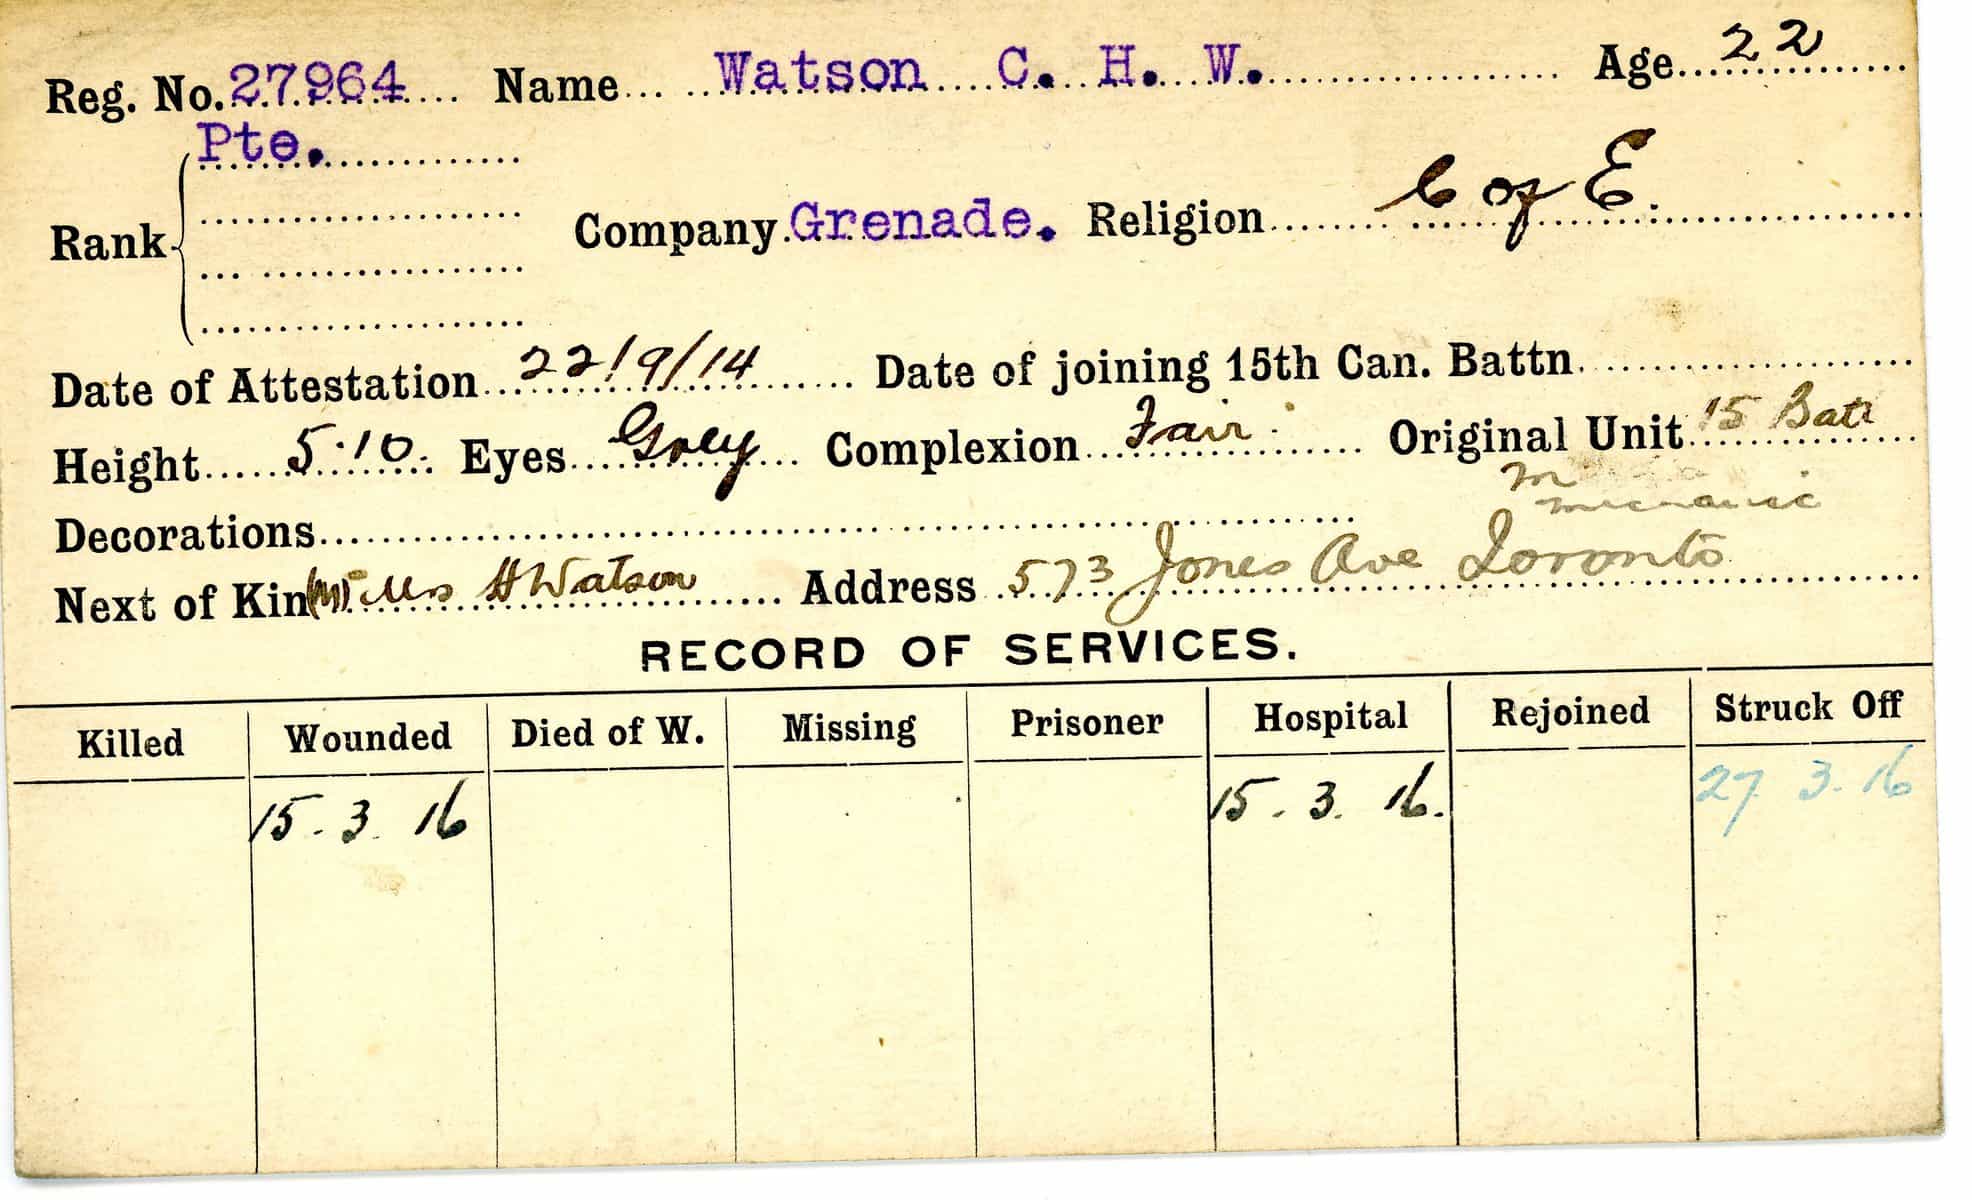 Reg. No. 27964 Name Watson C. H. W. Age 22
Pte.
Rank Company Grenade. Religion C of E.
Date of Attestation 22/9/14 Date of joining 15th Can. Battn
Height 5.10. Eyes Grey Complexion Fair Original Unit 15 Batt
M
Mechanic
Decorations
Next of Kin (M) Mrs H Watson Address 573 Jones Ave Toronto
RECORD OF SERVICES.
Killed Wounded Died of W. Missing Prisoner Hospital Rejoined Struck Off
15.3.16 15.3.16. 27.3.16